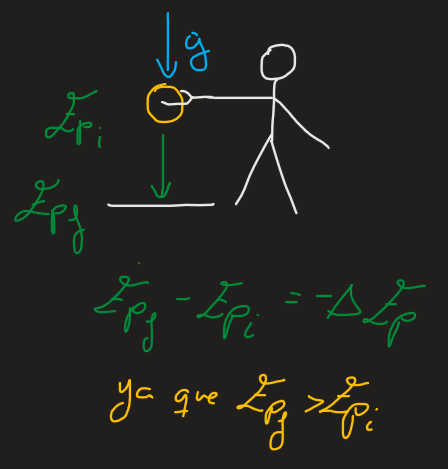 g
Epi
Epf
Epf - Epi = -ΔEp
ya que Epf > Epi